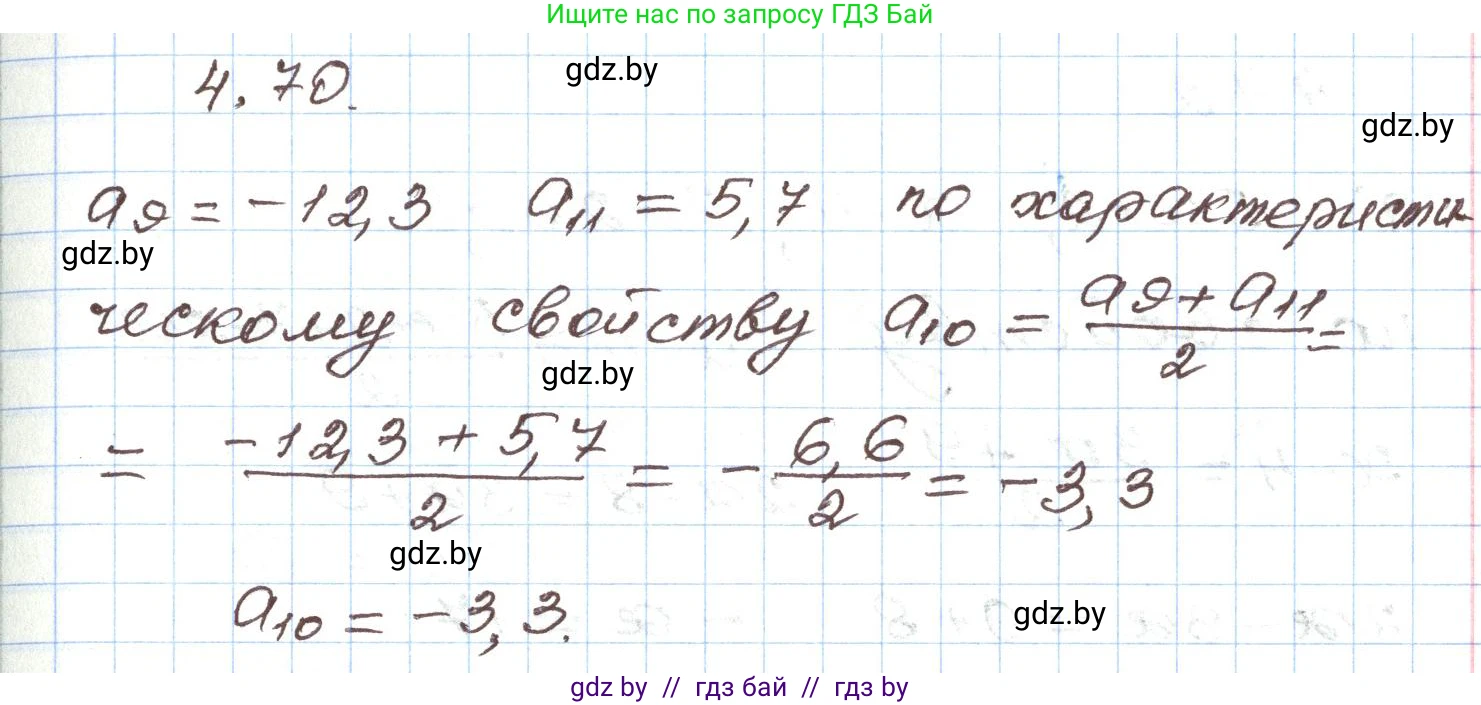 Ищите нас по запросу ГДЗ Бай
4.70.
gdz.by
gdz.by
a₉ = -12,3 a₁₁ = 5,7 по характеристи-
gdz.by
ческому свойству a₁₀ = (a₉ + a₁₁)/2 =
gdz.by
= (-12,3 + 5,7)/2 = - 6,6/2 = -3,3
gdz.by
a₁₀ = -3,3.
gdz.by
gdz by // гдз бай // гдз by